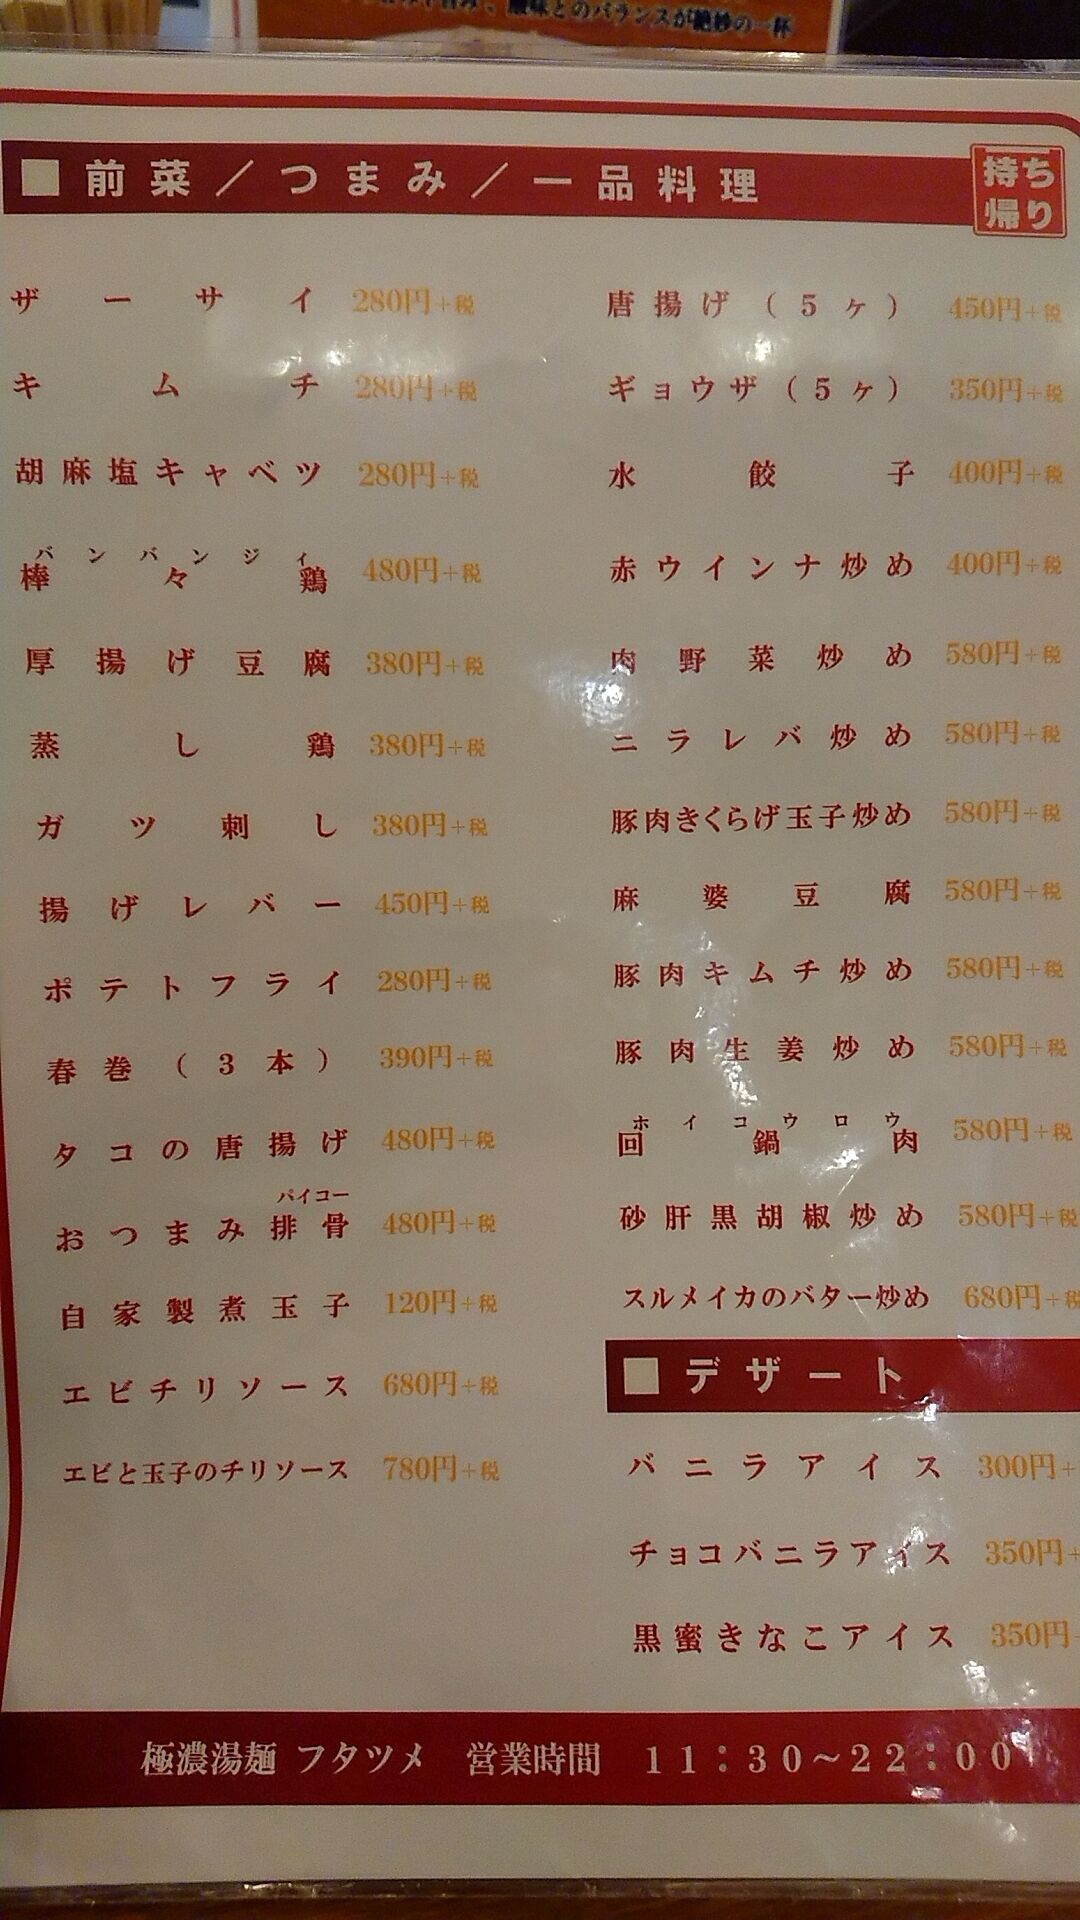 、酸味とのバランスが絶妙の一杯
■前菜／つまみ／一品料理
持ち
帰り
ザーサイ 280円+税
キムチ 280円+税
胡麻塩キャベツ 280円+税
バンバンジィ
棒々鶏 480円+税
厚揚げ豆腐 380円+税
蒸し鶏 380円+税
ガツ刺し 380円+税
揚げレバー 450円+税
ポテトフライ 280円+税
春巻（3本） 390円+税
タコの唐揚げ 480円+税
パイコー
おつまみ排骨 480円+税
自家製煮玉子 120円+税
エビチリソース 680円+税
エビと玉子のチリソース 780円+税
唐揚げ（5ヶ） 450円+税
ギョウザ（5ヶ） 350円+税
水餃子 400円+税
赤ウインナ炒め 400円+税
肉野菜炒め 580円+税
ニラレバ炒め 580円+税
豚肉きくらげ玉子炒め 580円+税
麻婆豆腐 580円+税
豚肉キムチ炒め 580円+税
豚肉生姜炒め 580円+税
ホイコウロウ
回鍋肉 580円+税
砂肝黒胡椒炒め 580円+税
スルメイカのバター炒め 680円+税
■デザート
バニラアイス 300円+
チョコバニラアイス 350円+
黒蜜きなこアイス 350円+
極濃湯麺 フタツメ 営業時間 11：30〜22：00